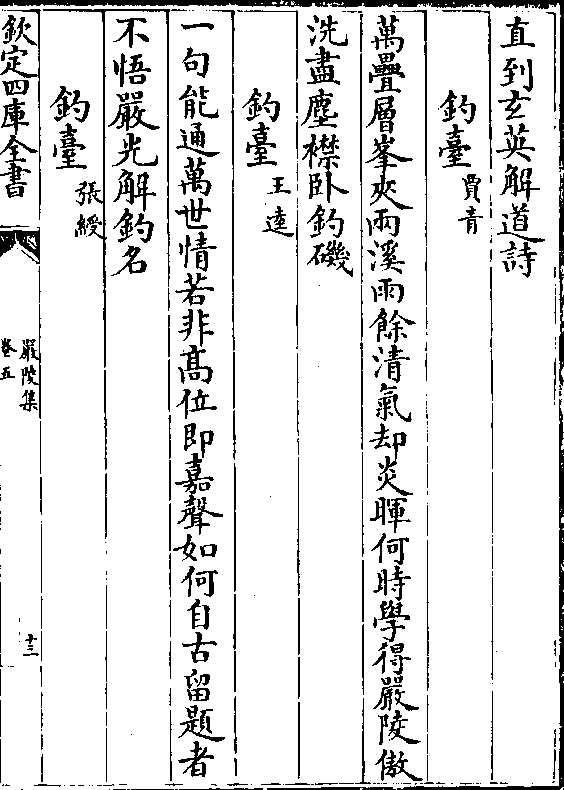 直到玄英解道詩
釣臺 賈青
萬疊層峯夾兩溪雨餘清氣却炎暉何時學得嚴陵傲
洗盡塵襟卧釣磯
釣臺 王逵
一句能通萬世情若非髙位即嘉聲如何自古留題者
不悟嚴光解釣名
釣臺 張綬
欽定四庫全書
嚴陵集
卷五
十三